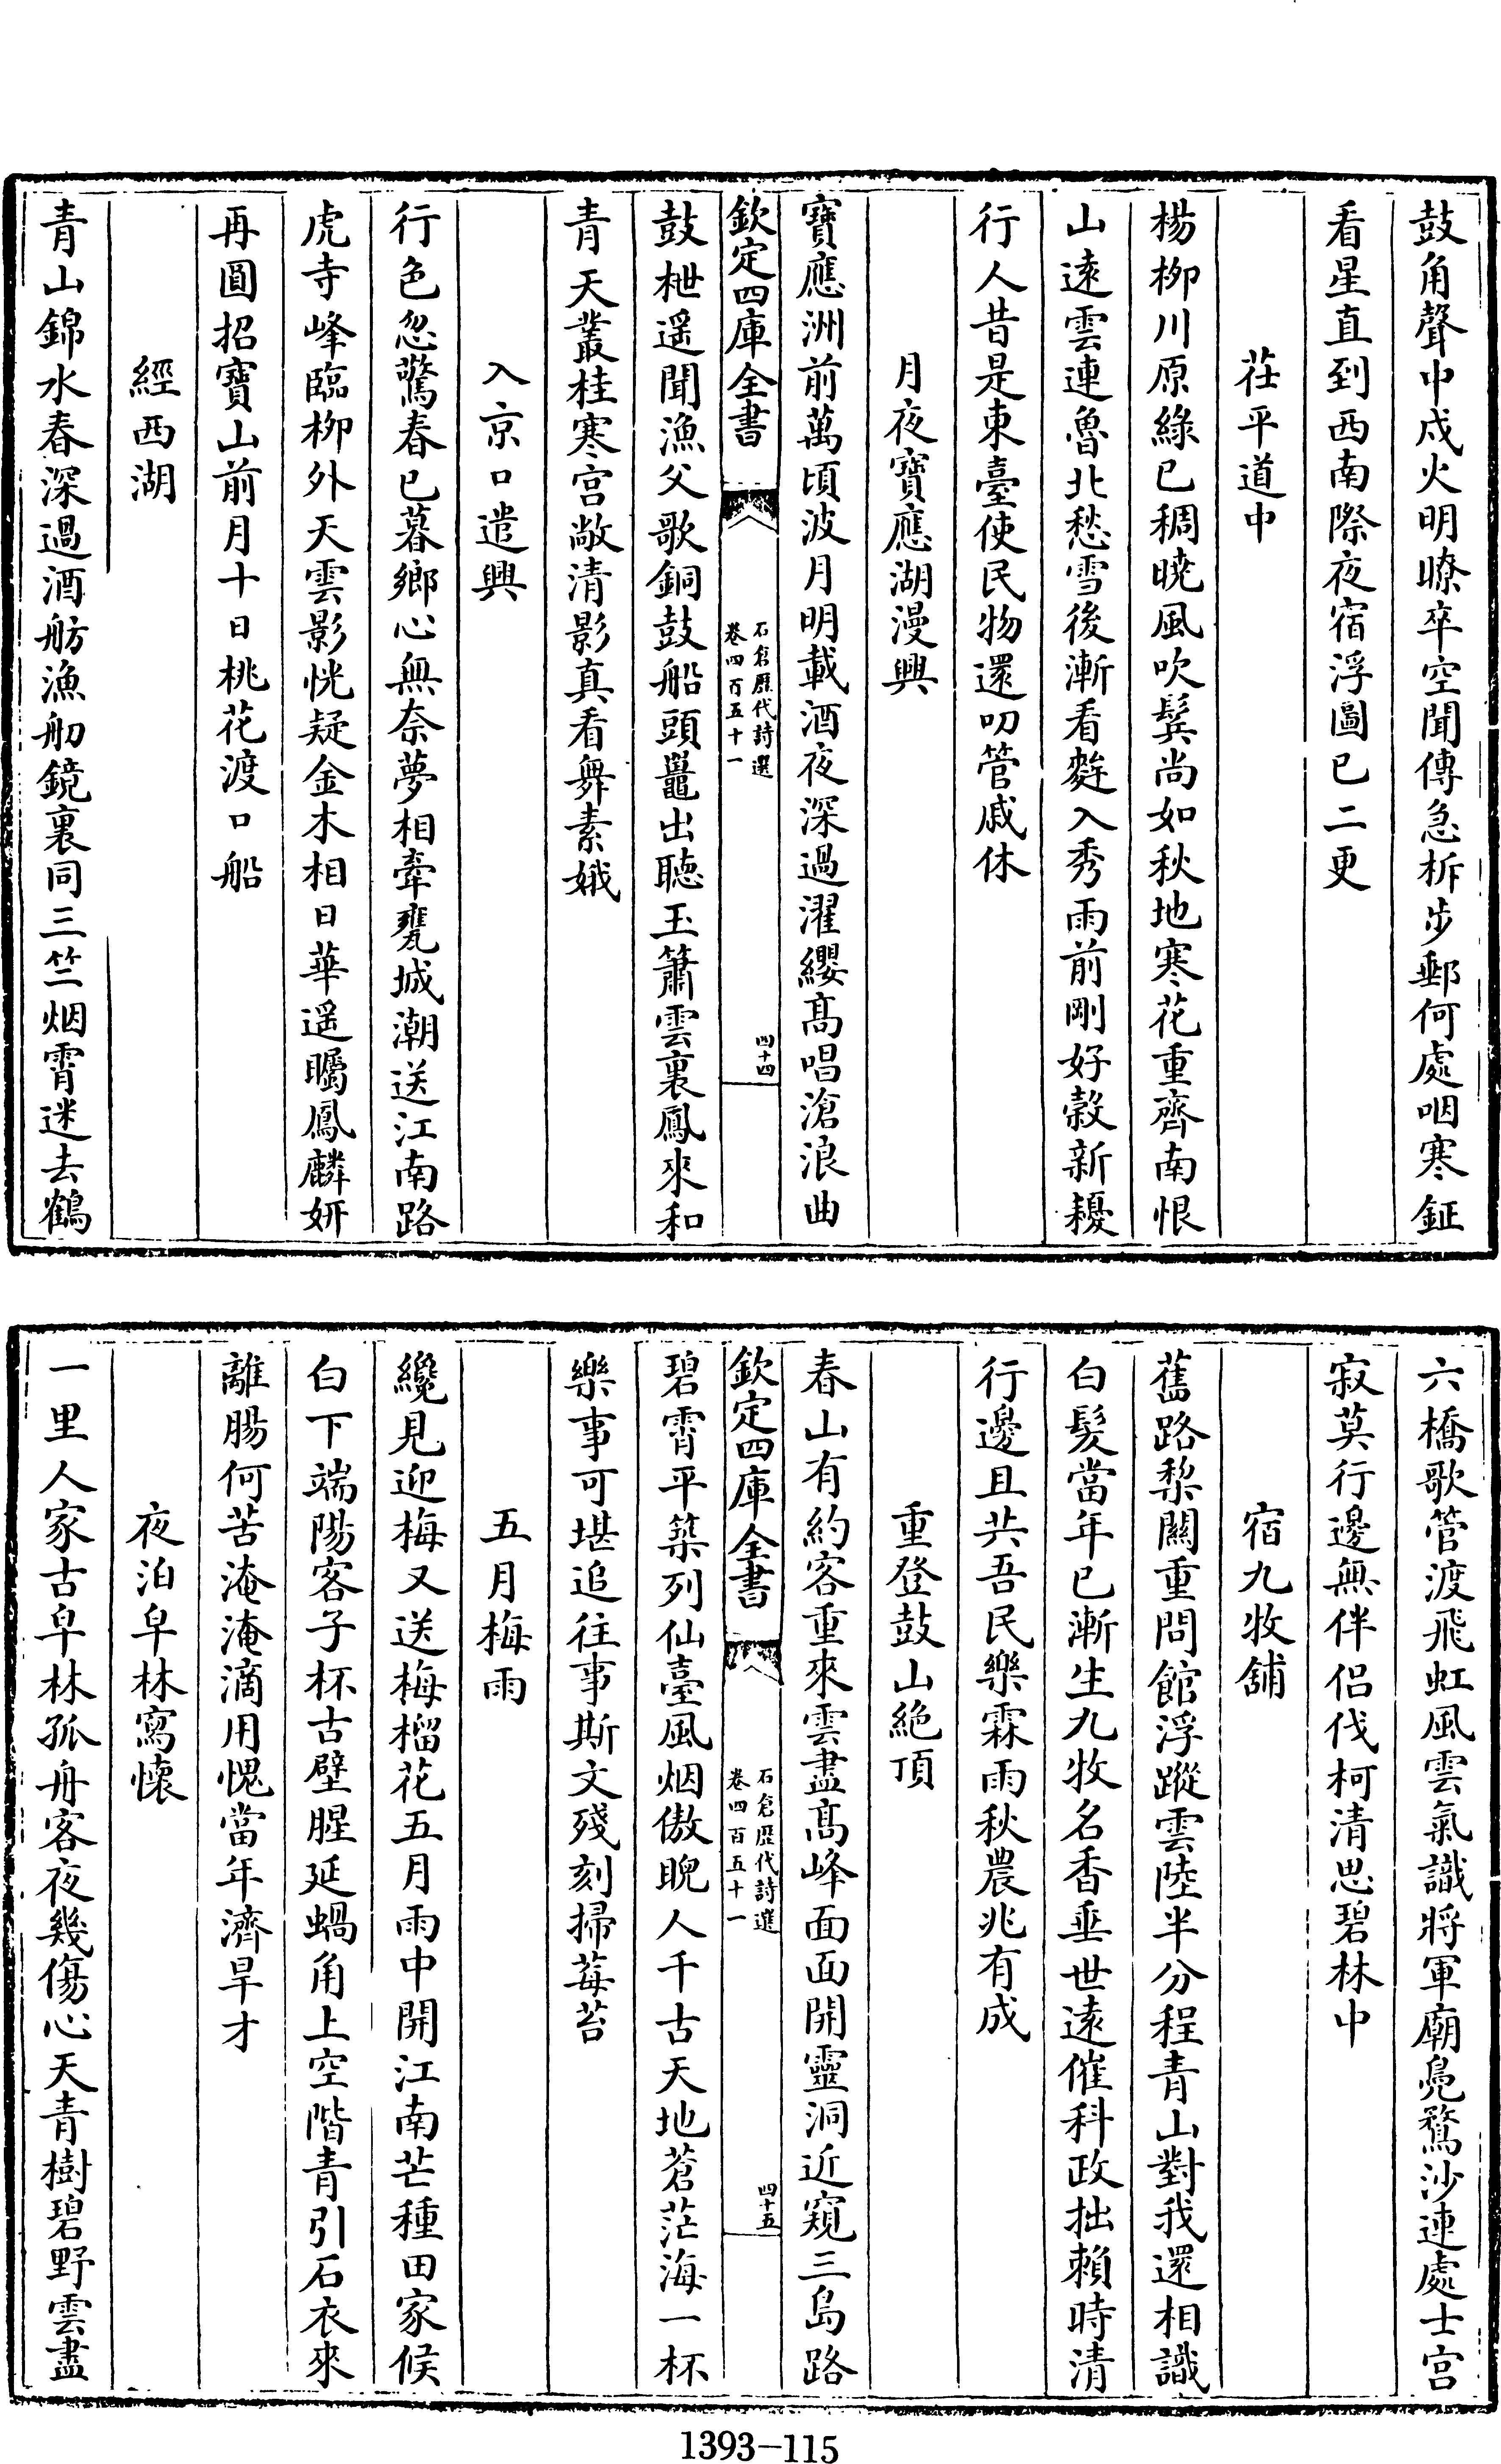 鼓角聲中戍火明瞭卒空聞傳急柝步郵何處咽寒鉦
看星直到西南際夜宿浮圖已二更
茌平道中
楊栁川原綠已稠曉風吹鬂尚如秋地寒花重齊南恨
山逺雲連魯北愁雪後漸看麰入秀雨前剛好榖新耰
行人昔是東臺使民物還叨管戚休
月夜寶應湖漫興
寶應洲前萬頃波月明載酒夜深過濯纓髙唱滄浪曲
欽定四庫全書
石倉歴代詩選
卷四百五十一
四十四
鼓枻遥聞漁父歌銅鼓船頭鼉出聽玉簫雲裏鳳來和
青天叢桂寒宫敞清影真看舞素娥
入京口遣興
行色忽驚春已暮鄉心無奈夢相牽甕城潮送江南路
虎寺峰臨栁外天雲影恍疑金木相日華遥矚鳳麟妍
再圓招寶山前月十日桃花渡口船
經西湖
青山錦水春深過酒舫漁舠鏡裏同三竺烟霄迷去鶴
六橋歌管渡飛虹風雲氣識將軍廟鳬鶩沙連處士宫
寂莫行邊無伴侣伐柯清思碧林中
宿九牧舖
舊路棃闗重問館浮蹤雲陸半分程青山對我還相識
白髮當年已漸生九牧名香垂世逺催科政拙賴時清
行邊且共吾民樂霖雨秋農兆有成
重登鼓山絶頂
春山有約客重來雲盡髙峰面面開靈洞近窺三島路
欽定四庫全書
石倉歴代詩選
卷四百五十一
四十五
碧霄平築列仙臺風烟傲睨人千古天地蒼茫海一杯
樂事可堪追往事斯文殘刻掃莓苔
五月梅雨
纔見迎梅又送梅榴花五月雨中開江南芒種田家候
白下端陽客子杯古壁腥延蝸角上空階青引石衣來
離腸何苦淹淹滴用愧當年濟旱才
夜泊皁林寫懷
一里人家古皁林孤舟客夜幾傷心天青樹碧野雲盡
1393—115